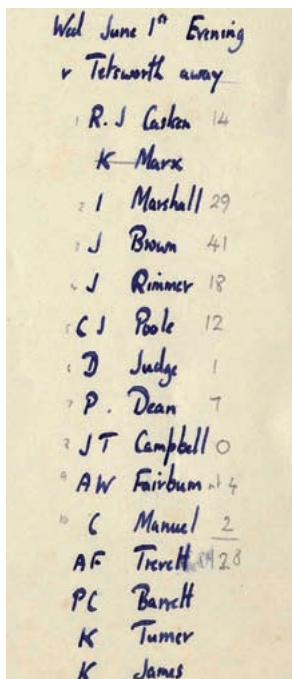 Wed June 1st Evening
v Tetsworth away
1 R. J Casken 14
K Marx
2 I Marshall 29
3 J Brown 41
4 J Rimmer 18
5 C J Poole 12
6 D Judge 1
7 P. Dean 7
8 J T Campbell 0
9 AW Fairburn nt 4
10 C Manuel 2
AF Trevett 128
PC Barrett
K Turner
K James